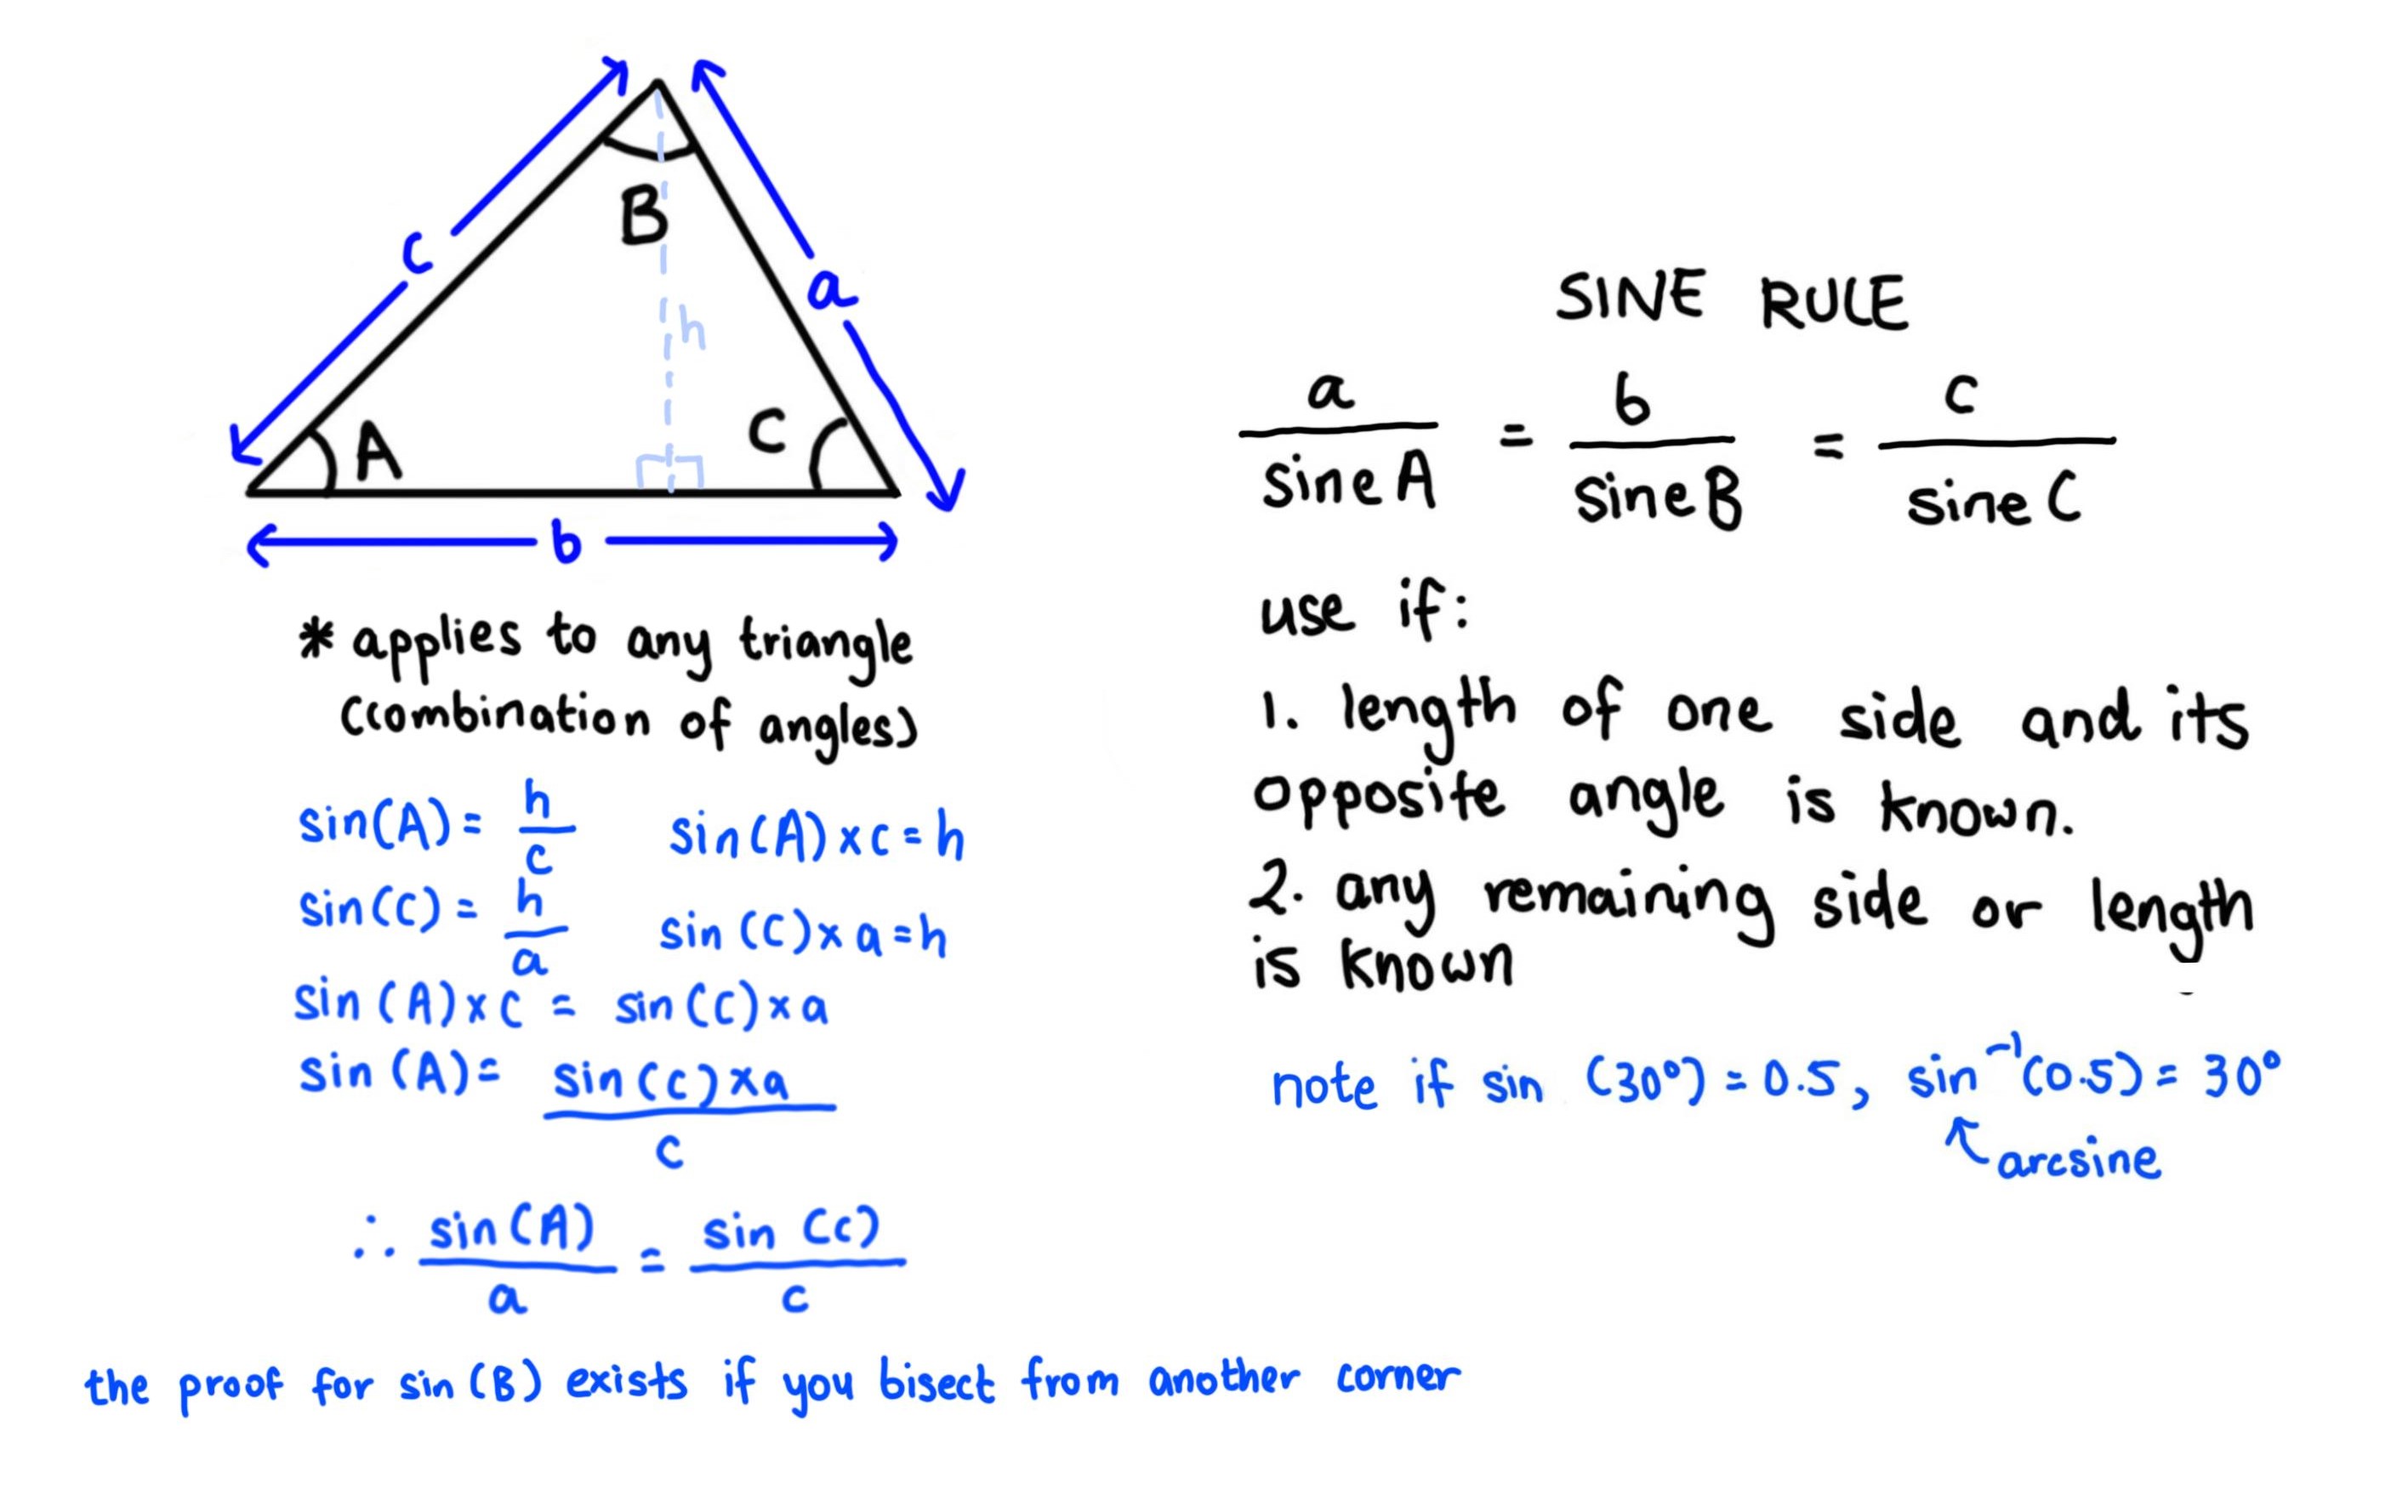 c
a
B
h
A
C
b
* applies to any triangle
(combination of angles)
sin(A) = h/c    sin(A) × c = h
sin(C) = h/a    sin(C) × a = h
sin(A) × c = sin(C) × a
sin(A) = sin(C) × a / c
∴ sin(A)/a = sin(C)/c
the proof for sin(B) exists if you bisect from another corner
SINE RULE
a/sine A = b/sine B = c/sine C
use if:
1. length of one side and its
opposite angle is known.
2. any remaining side or length
is known
note if sin (30°) = 0.5, sin⁻¹(0.5) = 30°
arcsine